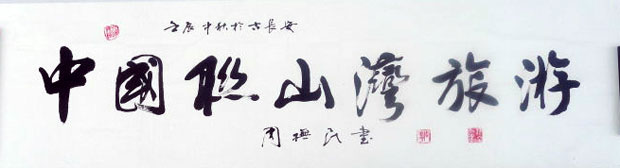 壬辰中秋於古長安
中國聯山灣旅游
周抚民書